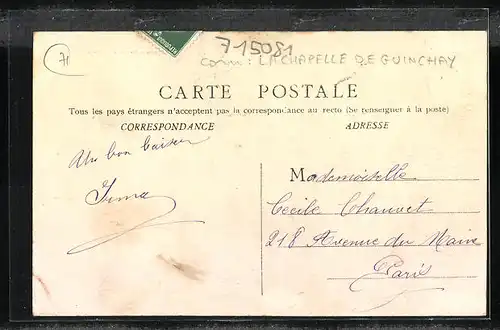 71
715081
Com : LA CHAPELLE DE GUINCHAY
CARTE POSTALE
Tous les pays étrangers n'acceptent pas la correspondance au recto (Se renseigner à la poste)
CORRESPONDANCE
ADRESSE
Un bon baiser
Mademoiselle
Cécile Chauvet
218 Avenue du Maine
Paris